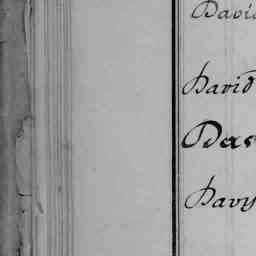 David
David
Das
Davy